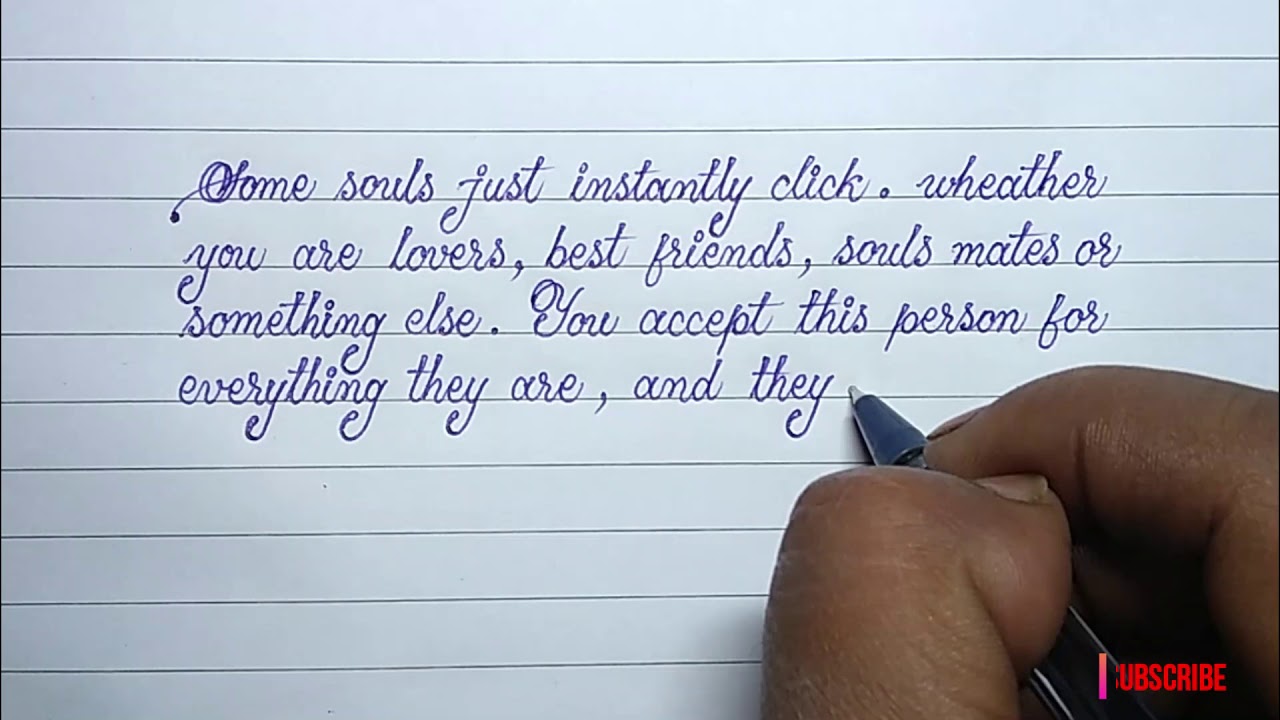 Some souls just instantly click. wheather
you are lovers, best friends, souls mates or
something else. You accept this person for
everything they are, and they
UBSCRIBE